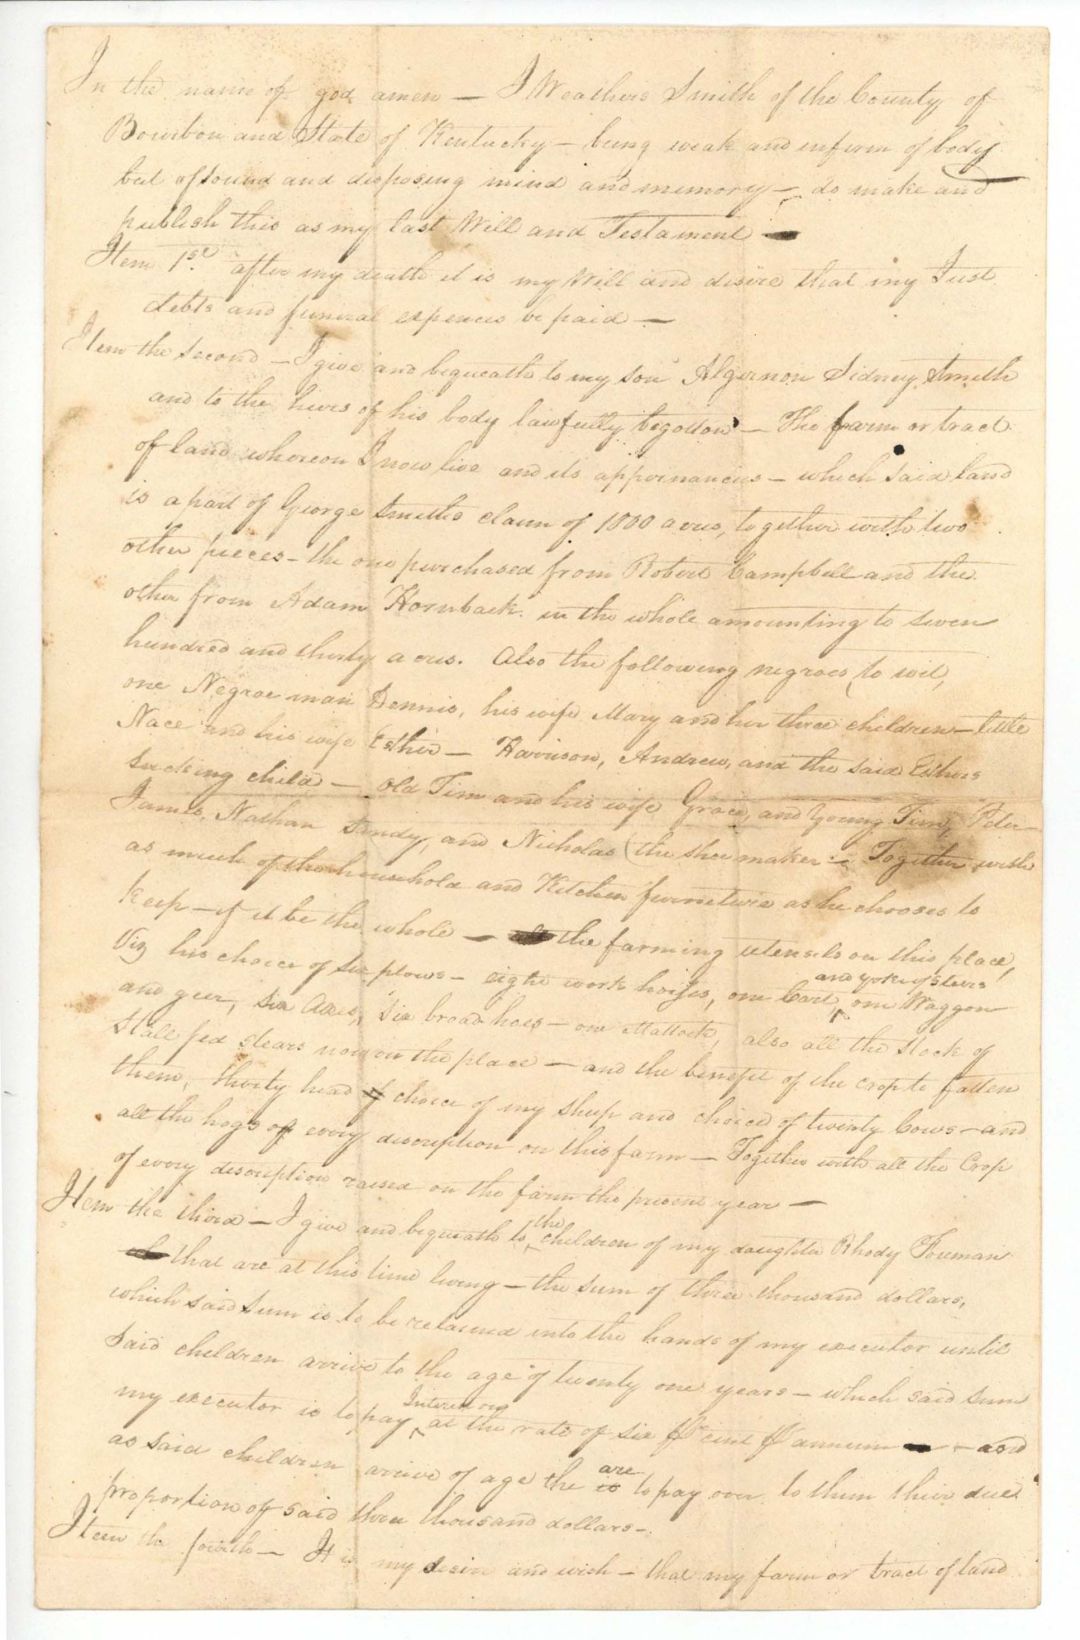 In the name of god amen — I Weathers Smith of the County of
Bourbon and State of Kentucky — being weak and infirm of body
but of sound and disposing mind and memory — do make and
publish this as my last Will and Testament —
Item 1st after my death it is my Will and desire that my Just
debts and funeral expences be paid —
Item the second — I give and bequeath to my son Algernon Sidney Smith
and to the heirs of his body lawfully begotten — The farm or tract
of land whereon I now live and its appurnancies — which said land
is a part of George Smiths claim of 1800 acres, together with two
other pieces — the one purchased from Robert Campbell and the
other from Adam Hornback in the whole amounting to seven
hundred and thirty acres. Also the following negroes (to wit,
one Negroe man Dennis, his wife Mary and her three children — little
Nace and his wife Esther — Harrison, Andrew, and the said Esthers
sucking child — Old Tim and his wife Grace, and Young Tim, Peter
James, Nathan Sandy, and Nicholas (the shoe maker — Together with
as much of the household and Kitchen furniture as he chooses to
keep — if it be the whole — the farming utensils on this place,
Viz his choice of six plows — eight work horses, one Cart and yorke of steers one Waggon
and geer, six axes, six broad hoes — one Mattock, also all the stock of
Stall fed stears now on the place — and the benefit of the crop to fatten
them, thirty head of choice of my sheep and choice of twenty Cows — and
all the hogs of every discription on this farm — Together with all the Crop
of every discription raised on the farm the present year —
Item the third — I give and bequeath to the children of my daughter Rhody Fouman
that are at this time living — the sum of three thousand dollars,
which said sum is to be retained into the hands of my executor until
said children arrive to the age of twenty one years — which said sum
my executor is to pay Interest on at the rate of six pr cent pr annum — and
as said children arrive of age the are to pay over to them their due
proportion of said three thousand dollars —
Item the fourth — It is my desire and wish — that my farm or tract of land